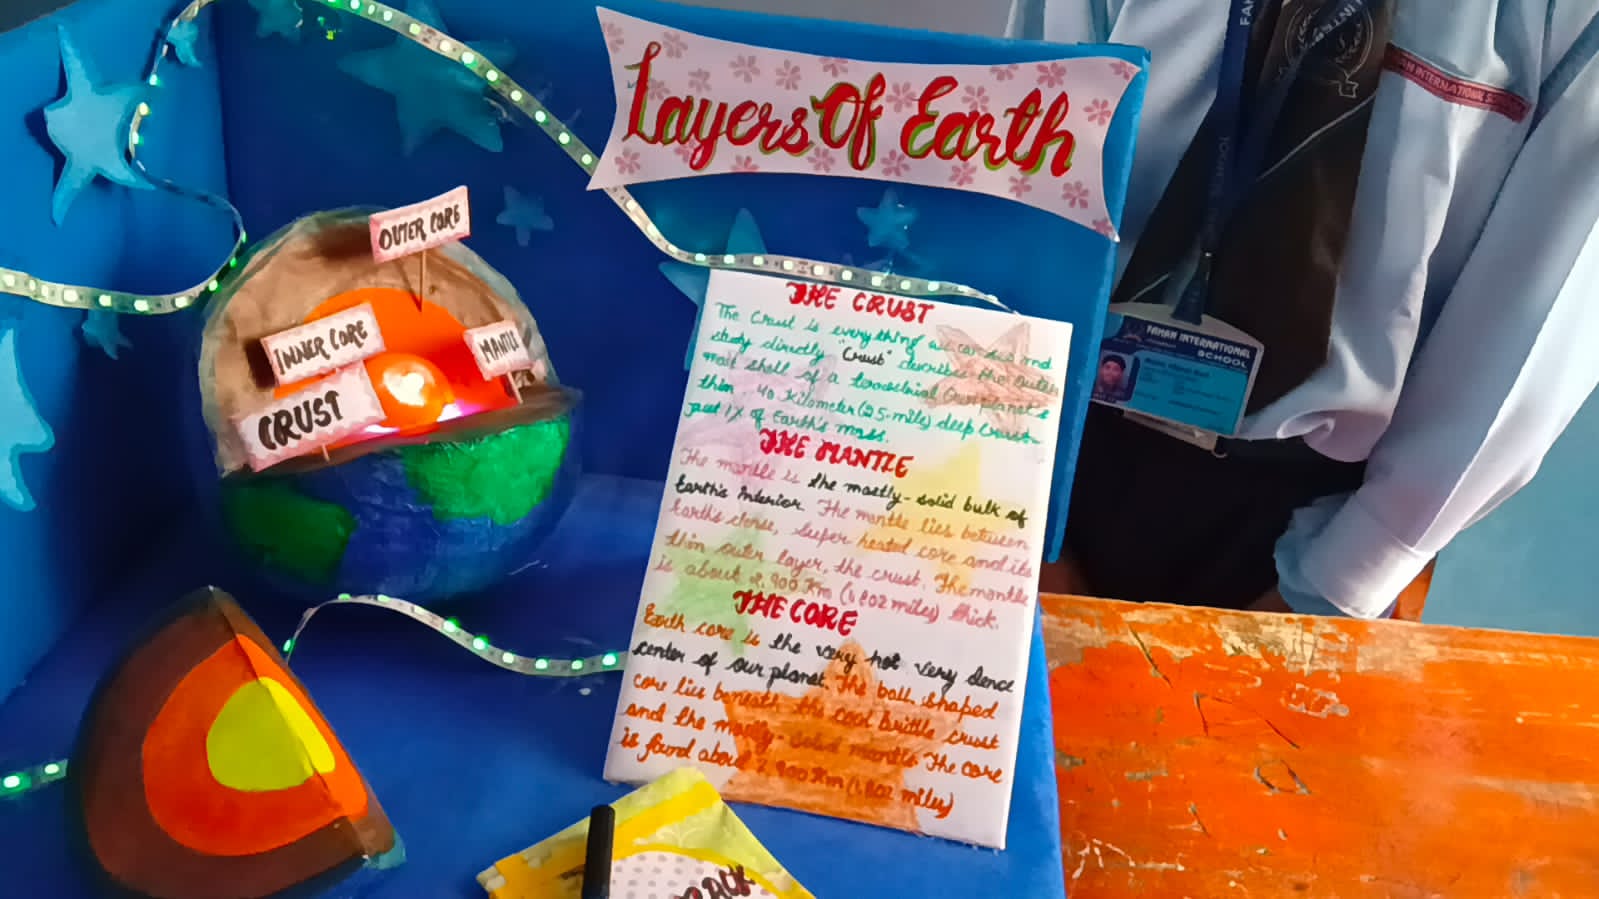 Layers Of Earth
OUTER CORE
INNER CORE
MANTLE
CRUST
THE CRUST
The Crust is everything we can see and
study directly "Crust" describes the outer
most shell of a terrestrial Our planet's
thin 40 Kilometer (25-mile) deep Crust-
just 1% of Earth's mass.
THE MANTLE
The mantle is the mostly-solid bulk of
Earth's Interior. The mantle lies between
Earth's dense, super heated core and its
thin outer layer, the crust. The mantle
is about 2,900 Km (1,802 miles) thick.
THE CORE
Earth core is the very hot very dence
center of our planet. The ball shaped
core lies beneath the cool brittle crust
and the mostly-solid mantle. The core
is found about 2,900 Km (1,802 miles)
INTERNATIONAL
FAHAN INTERNATIONAL
SCHOOL